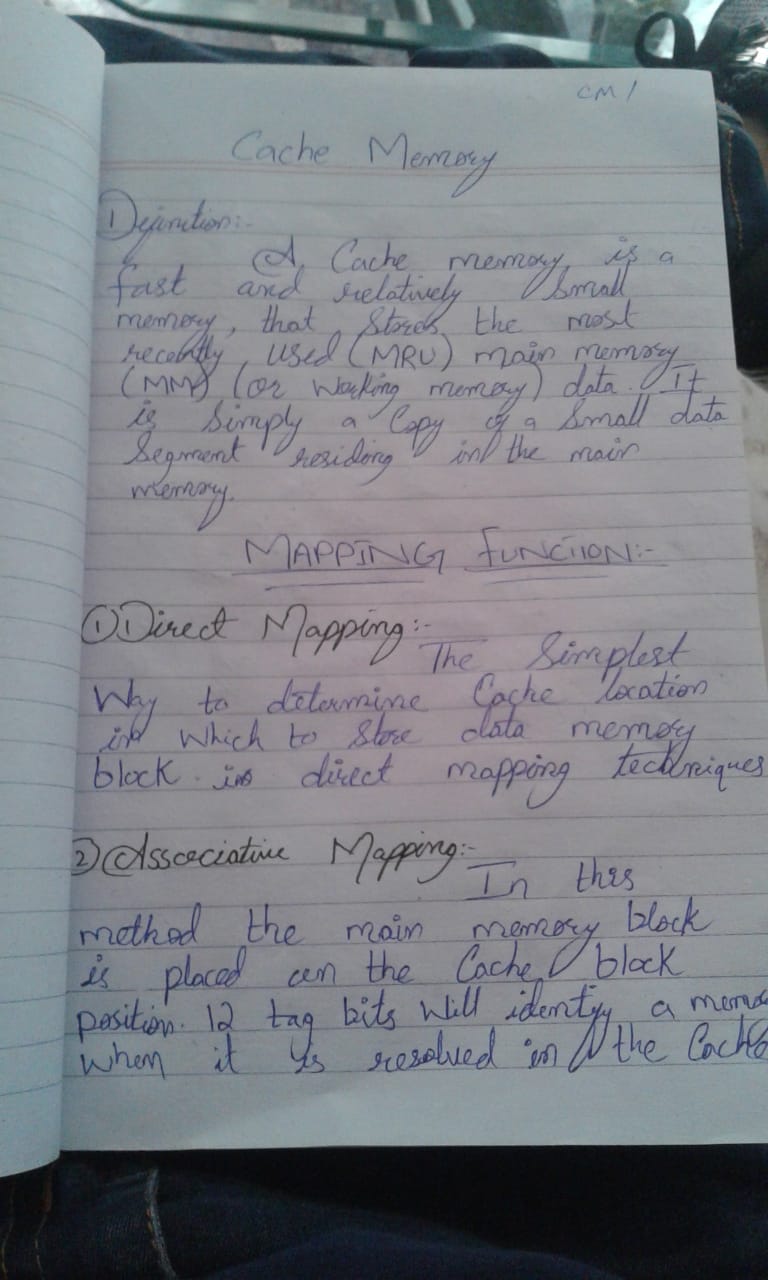 CM 1
Cache Memory
① Definition:-
A Cache memory is a
fast and relatively Small
memory, that Stores the most
recently used (MRU) main memory
(MM) (or Working memory) data. It
is Simply a Copy of a Small data
Segment residing in the main
memory.
MAPPING FUNCTION:-
① Direct Mapping:-
The Simplest
Way to determine Cache location
in which to Store data memory
block in direct mapping techniques
② Associative Mapping:-
In this
method the main memory block
is placed in the Cache block
position. 12 tag bits Will identify a memo
When it is resolved in the Cache